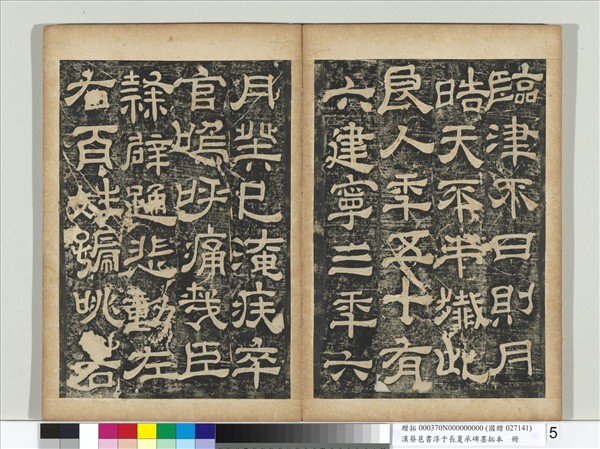 臨津不日則月
皓天不弔殲此
良人年五十有
六建寧三年六
月癸巳淹疾卒
官嗚呼痛哉臣
隸辟踊悲動左
右百姓號咷若
贈拓 000370N000000000 (國贈 027141)
漢蔡邕書淳于長夏承碑墨拓本 冊
5